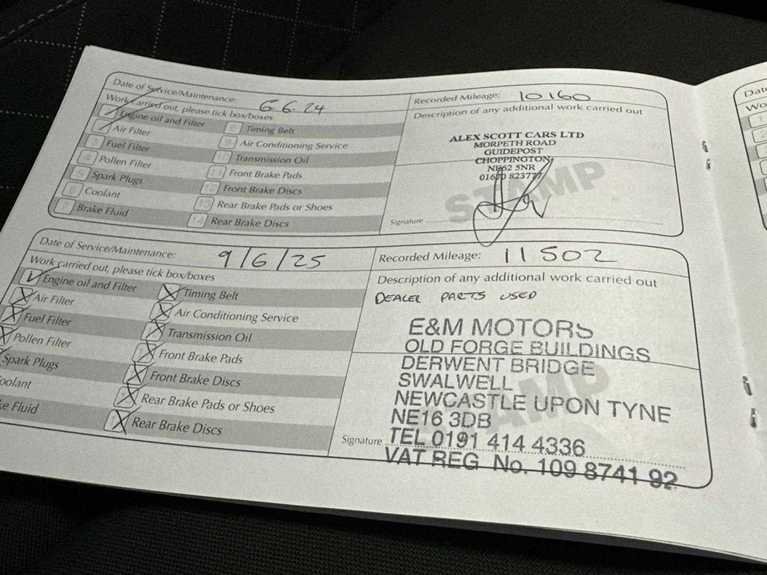 Date of Service/Maintenance: 6.6.24
Recorded Mileage: 10160
Work carried out, please tick box/boxes
Description of any additional work carried out
1 Engine oil and Filter
8 Timing Belt
2 Air Filter
9 Air Conditioning Service
3 Fuel Filter
10 Transmission Oil
4 Pollen Filter
11 Front Brake Pads
5 Spark Plugs
12 Front Brake Discs
6 Coolant
13 Rear Brake Pads or Shoes
7 Brake Fluid
14 Rear Brake Discs
ALEX SCOTT CARS LTD
MORPETH ROAD
GUIDEPOST
CHOPPINGTON
NE62 5NR
STAMP
Signature
Date of Service/Maintenance: 9/6/25
Recorded Mileage: 11502
Work carried out, please tick box/boxes
Description of any additional work carried out
DEALER PARTS USED
Engine oil and Filter
Timing Belt
Air Filter
Air Conditioning Service
Fuel Filter
Transmission Oil
Pollen Filter
Front Brake Pads
Spark Plugs
Front Brake Discs
oolant
Rear Brake Pads or Shoes
ke Fluid
Rear Brake Discs
E&M MOTORS
OLD FORGE BUILDINGS
DERWENT BRIDGE
SWALWELL
NEWCASTLE UPON TYNE
NE16 3DB
STAMP
Signature TEL 0191 414 4336
VAT REG No. 109 8741 92
Dat
Wo